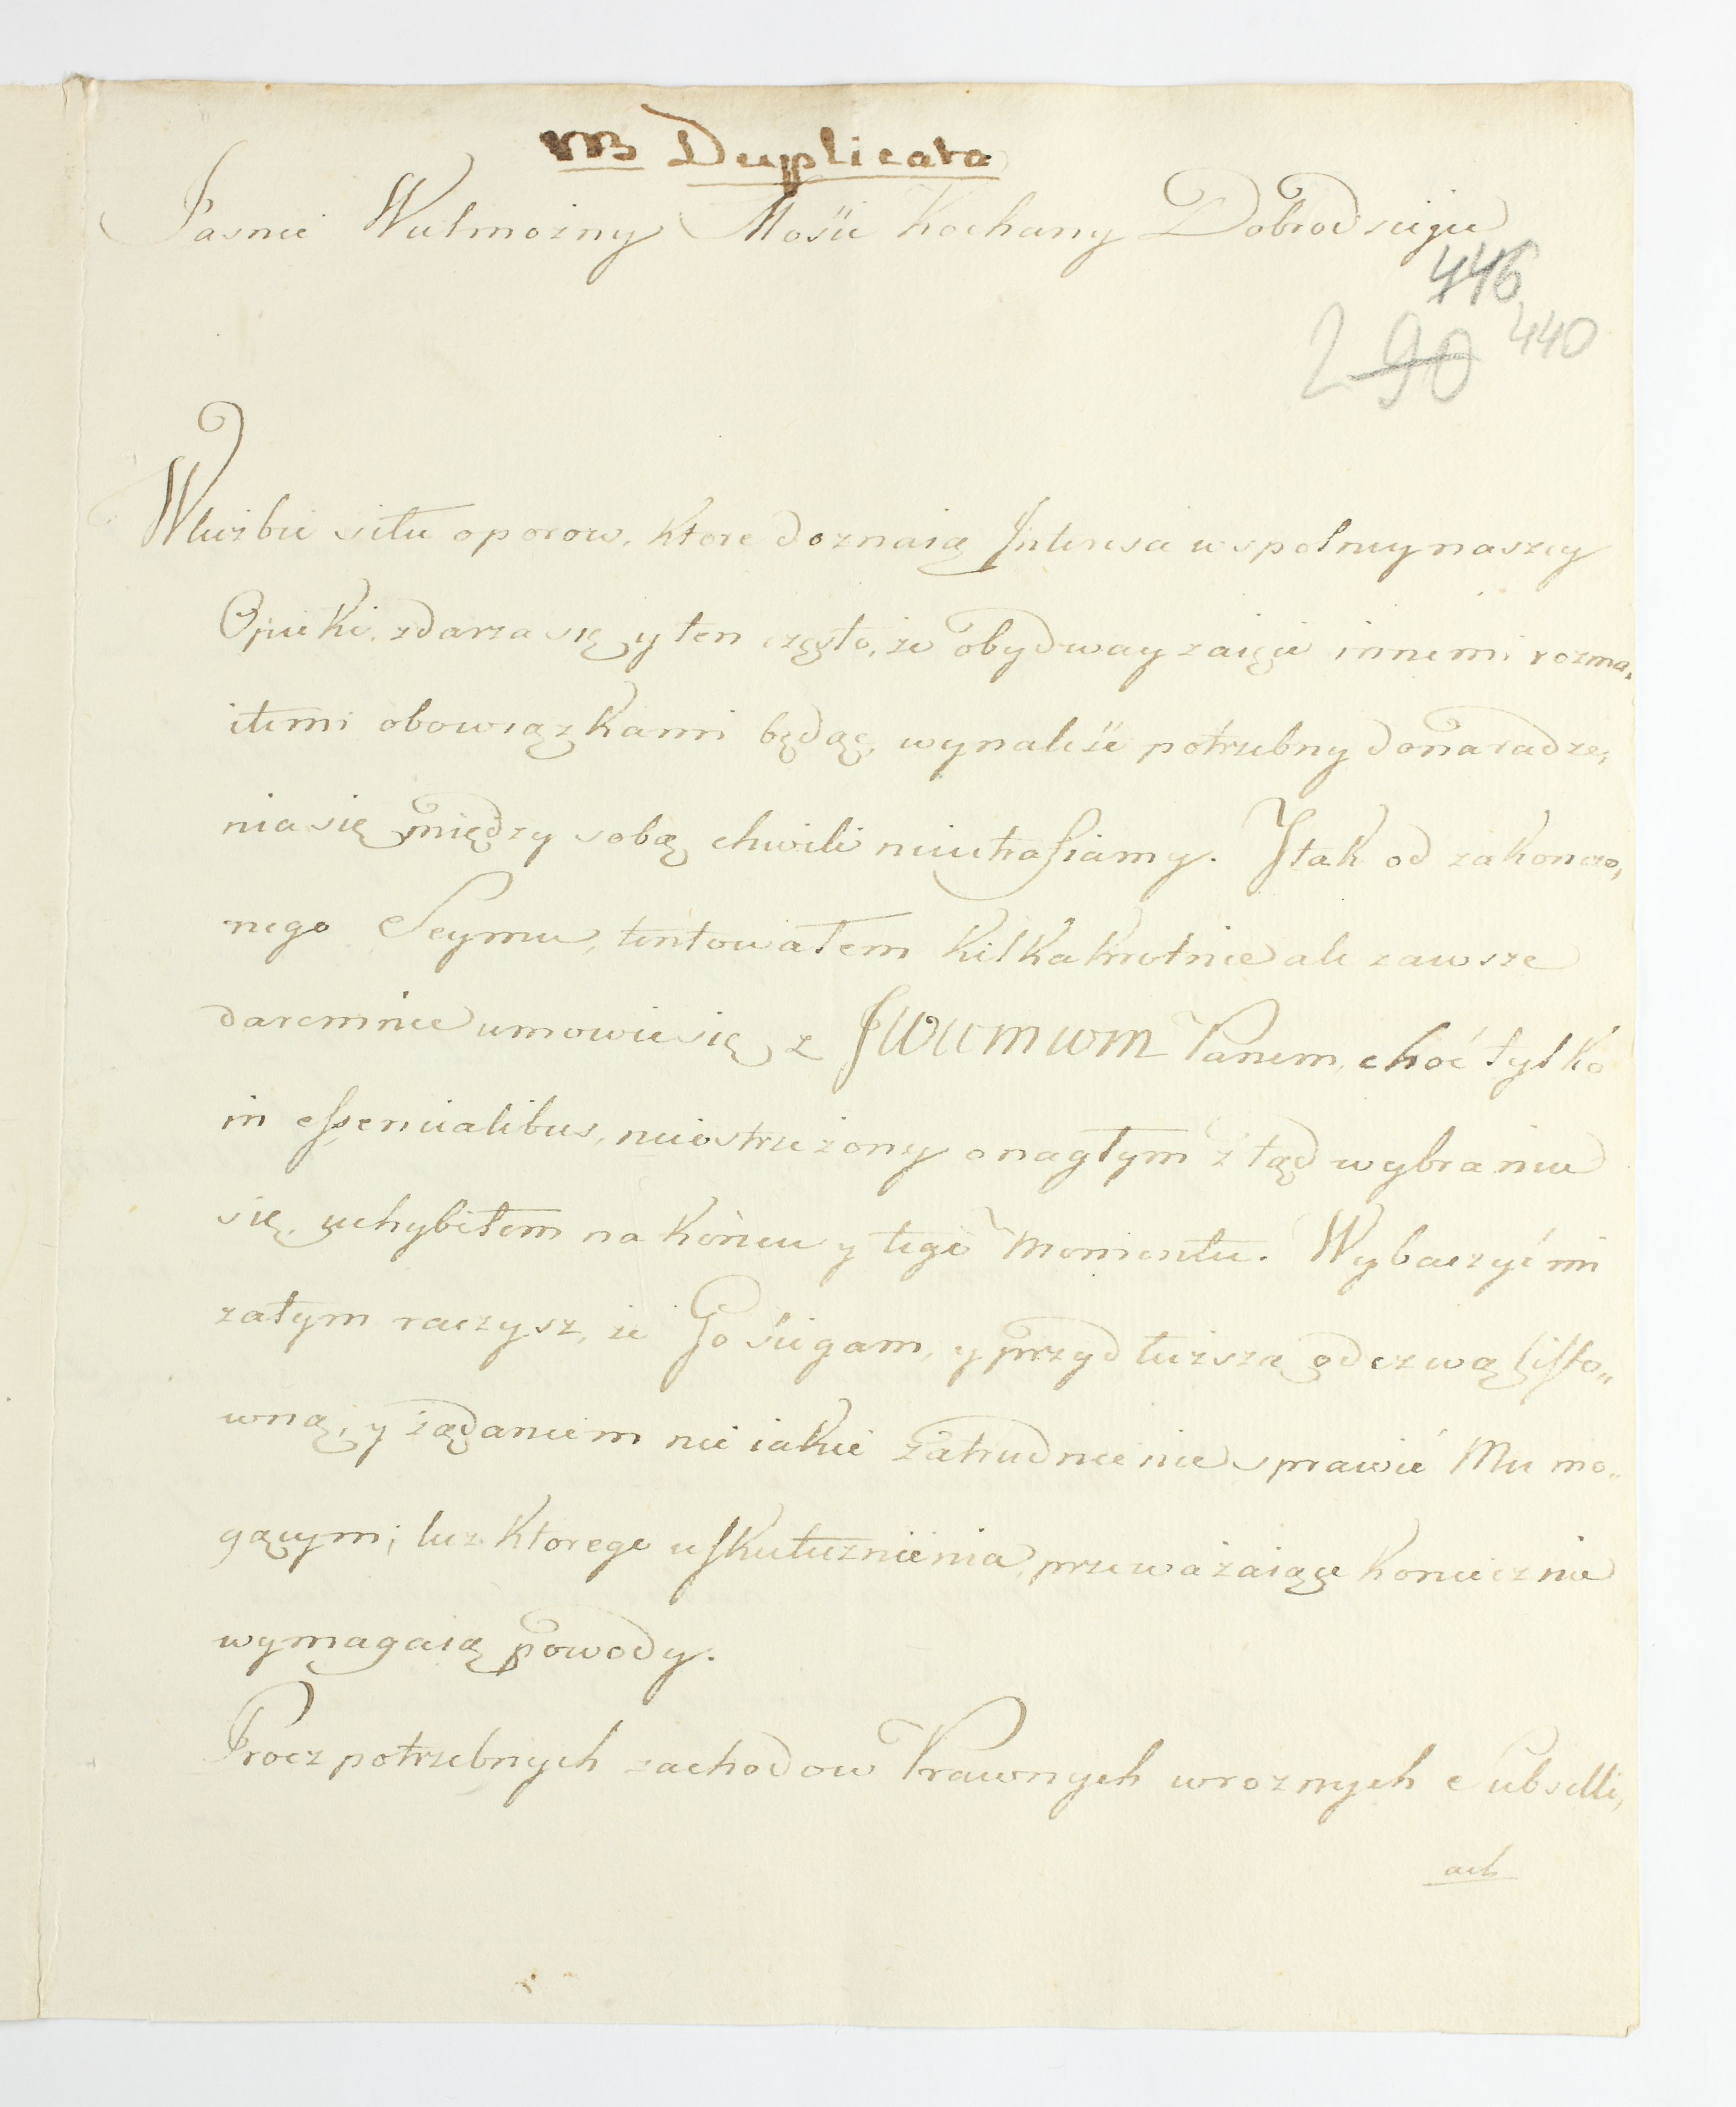 NB Duplicata
Jasnie Wielmożny Mości Kochany Dobrodzieju
446
290 440
W liczbie siłu oporow, ktore doznaią Interesa wspolney naszey
Opieki, zdarza się y ten często, że obydway zaięci innemi rozma,
itemi obowiązkami będąc, wynaleść potrzebny do naradze,
nia się między sobą chwili nie utrafiamy. I tak od zakonczo,
nego Seymu, tentowałem kilkakrotnie ale zawsze
daremnie umowić się z JWWmWm Panem, choć tylko
in essencialibus, nieostrzeżony o nagłym z tąd wybraniu
się, uchybiłem na końcu y tego momentu. Wybaczyć mi
zatym raczysz, że Go ścigam, y przydłuższą odezwą listo„
wną, y żądaniem nieiakie zatrudnienie sprawić Mu mo„
gącym; lecz ktorego uskutecznienia, przeważaiące koniecznie
wymagaią powody.
Procz potrzebnych zachodow Prawnych w roznych Subselli,
ach